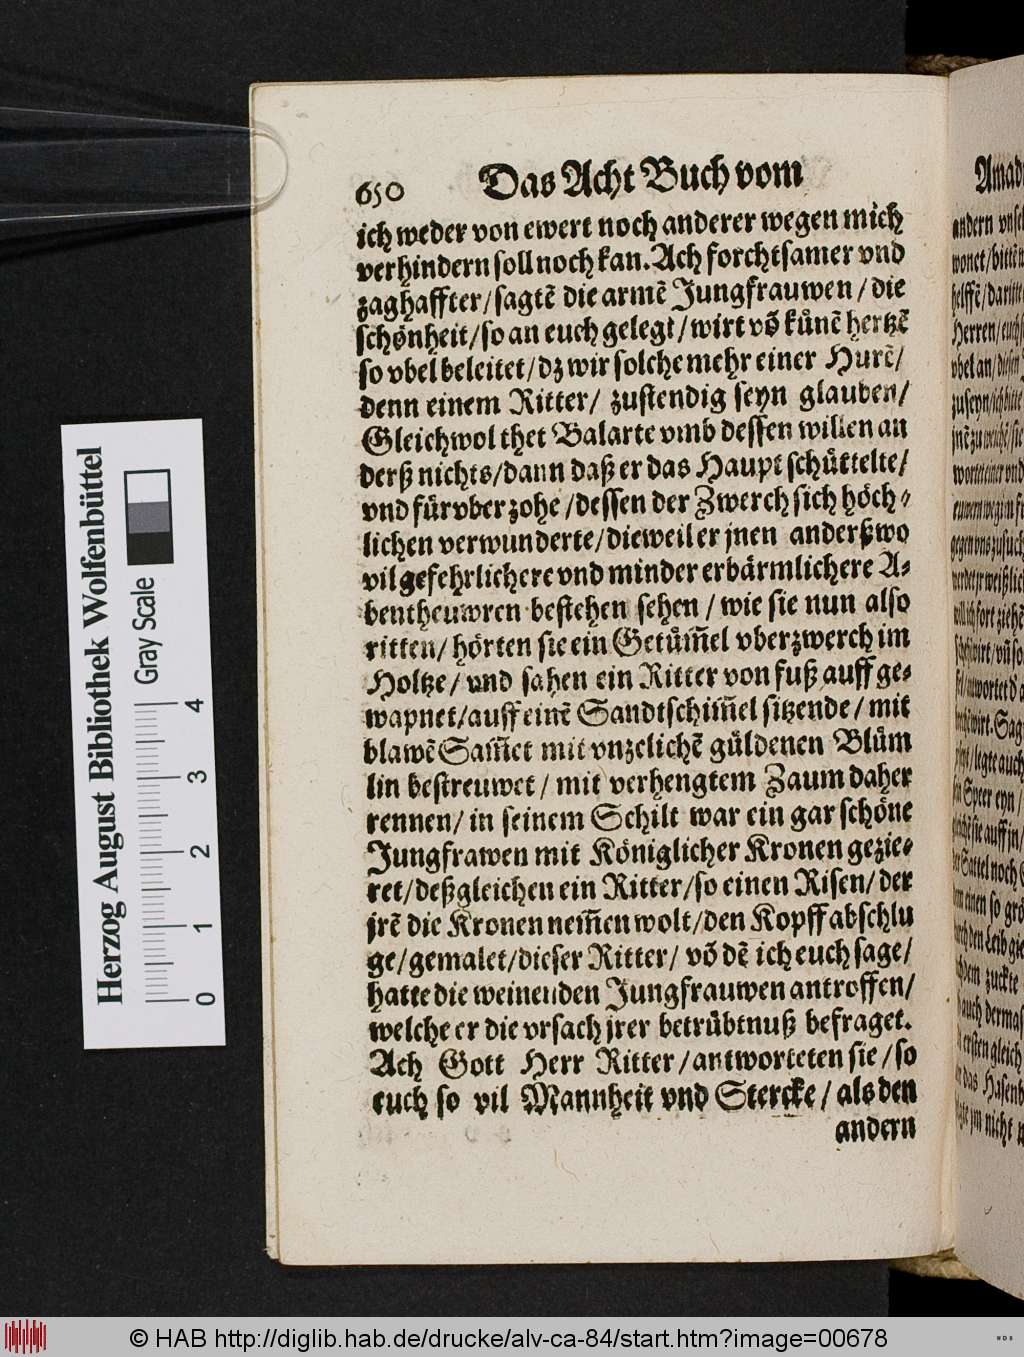 650 Das Acht Buch vom
ich weder von ewert noch anderer wegen mich
verhindern soll noch kan. Ach forchtsamer vnd
zaghaffter/ sagtẽ die armẽ Jungfrauwen / die
schönheit/ so an euch gelegt/ wirt võ kůnẽ hertzẽ
so vbel beleitet/ dz wir solche mehr einer Hurẽ/
denn einem Ritter/ zustendig seyn glauben/
Gleichwol thet Balarte vmb dessen willen an
derß nichts/ dann daß er das Haupt schüttelte/
vnd fürvber zohe / dessen der Zwerch sich höch-
lichen verwunderte/ dieweil er jnen anderßwo
vil gefehrlichere vnd minder erbärmlichere A-
bentheuwren bestehen sehen / wie sie nun also
ritten/ hörten sie ein Getům̃el vberzwerch im
Holtze/ vnd sahen ein Ritter von fuß auff ge-
wapnet/ auff einẽ Sandtschim̃el sitzende/ mit
blawẽ Sam̃et mit vnzelichẽ güldenen Blům
lin bestreuwet / mit verhengtem Zaum daher
rennen/ in seinem Schilt war ein gar schöne
Jungfrawen mit Königlicher Kronen gezie-
ret/ deßgleichen ein Ritter/ so einen Risen/ der
jrẽ die Kronen nem̃en wolt/ den Kopff abschlu
ge/ gemalet/ dieser Ritter/ võ dẽ ich euch sage/
hatte die weinenden Jungfrauwen antroffen/
welche er die vrsach jrer betrübtnuß befraget.
Ach Gott Herr Ritter/ antworteten sie / so
euch so vil Mannheit vnd Stercke / als den
andern
Amad
andern vnse
Herzog August Bibliothek Wolfenbüttel
Gray Scale
0 1 2 3 4
© HAB http://diglib.hab.de/drucke/alv-ca-84/start.htm?image=00678